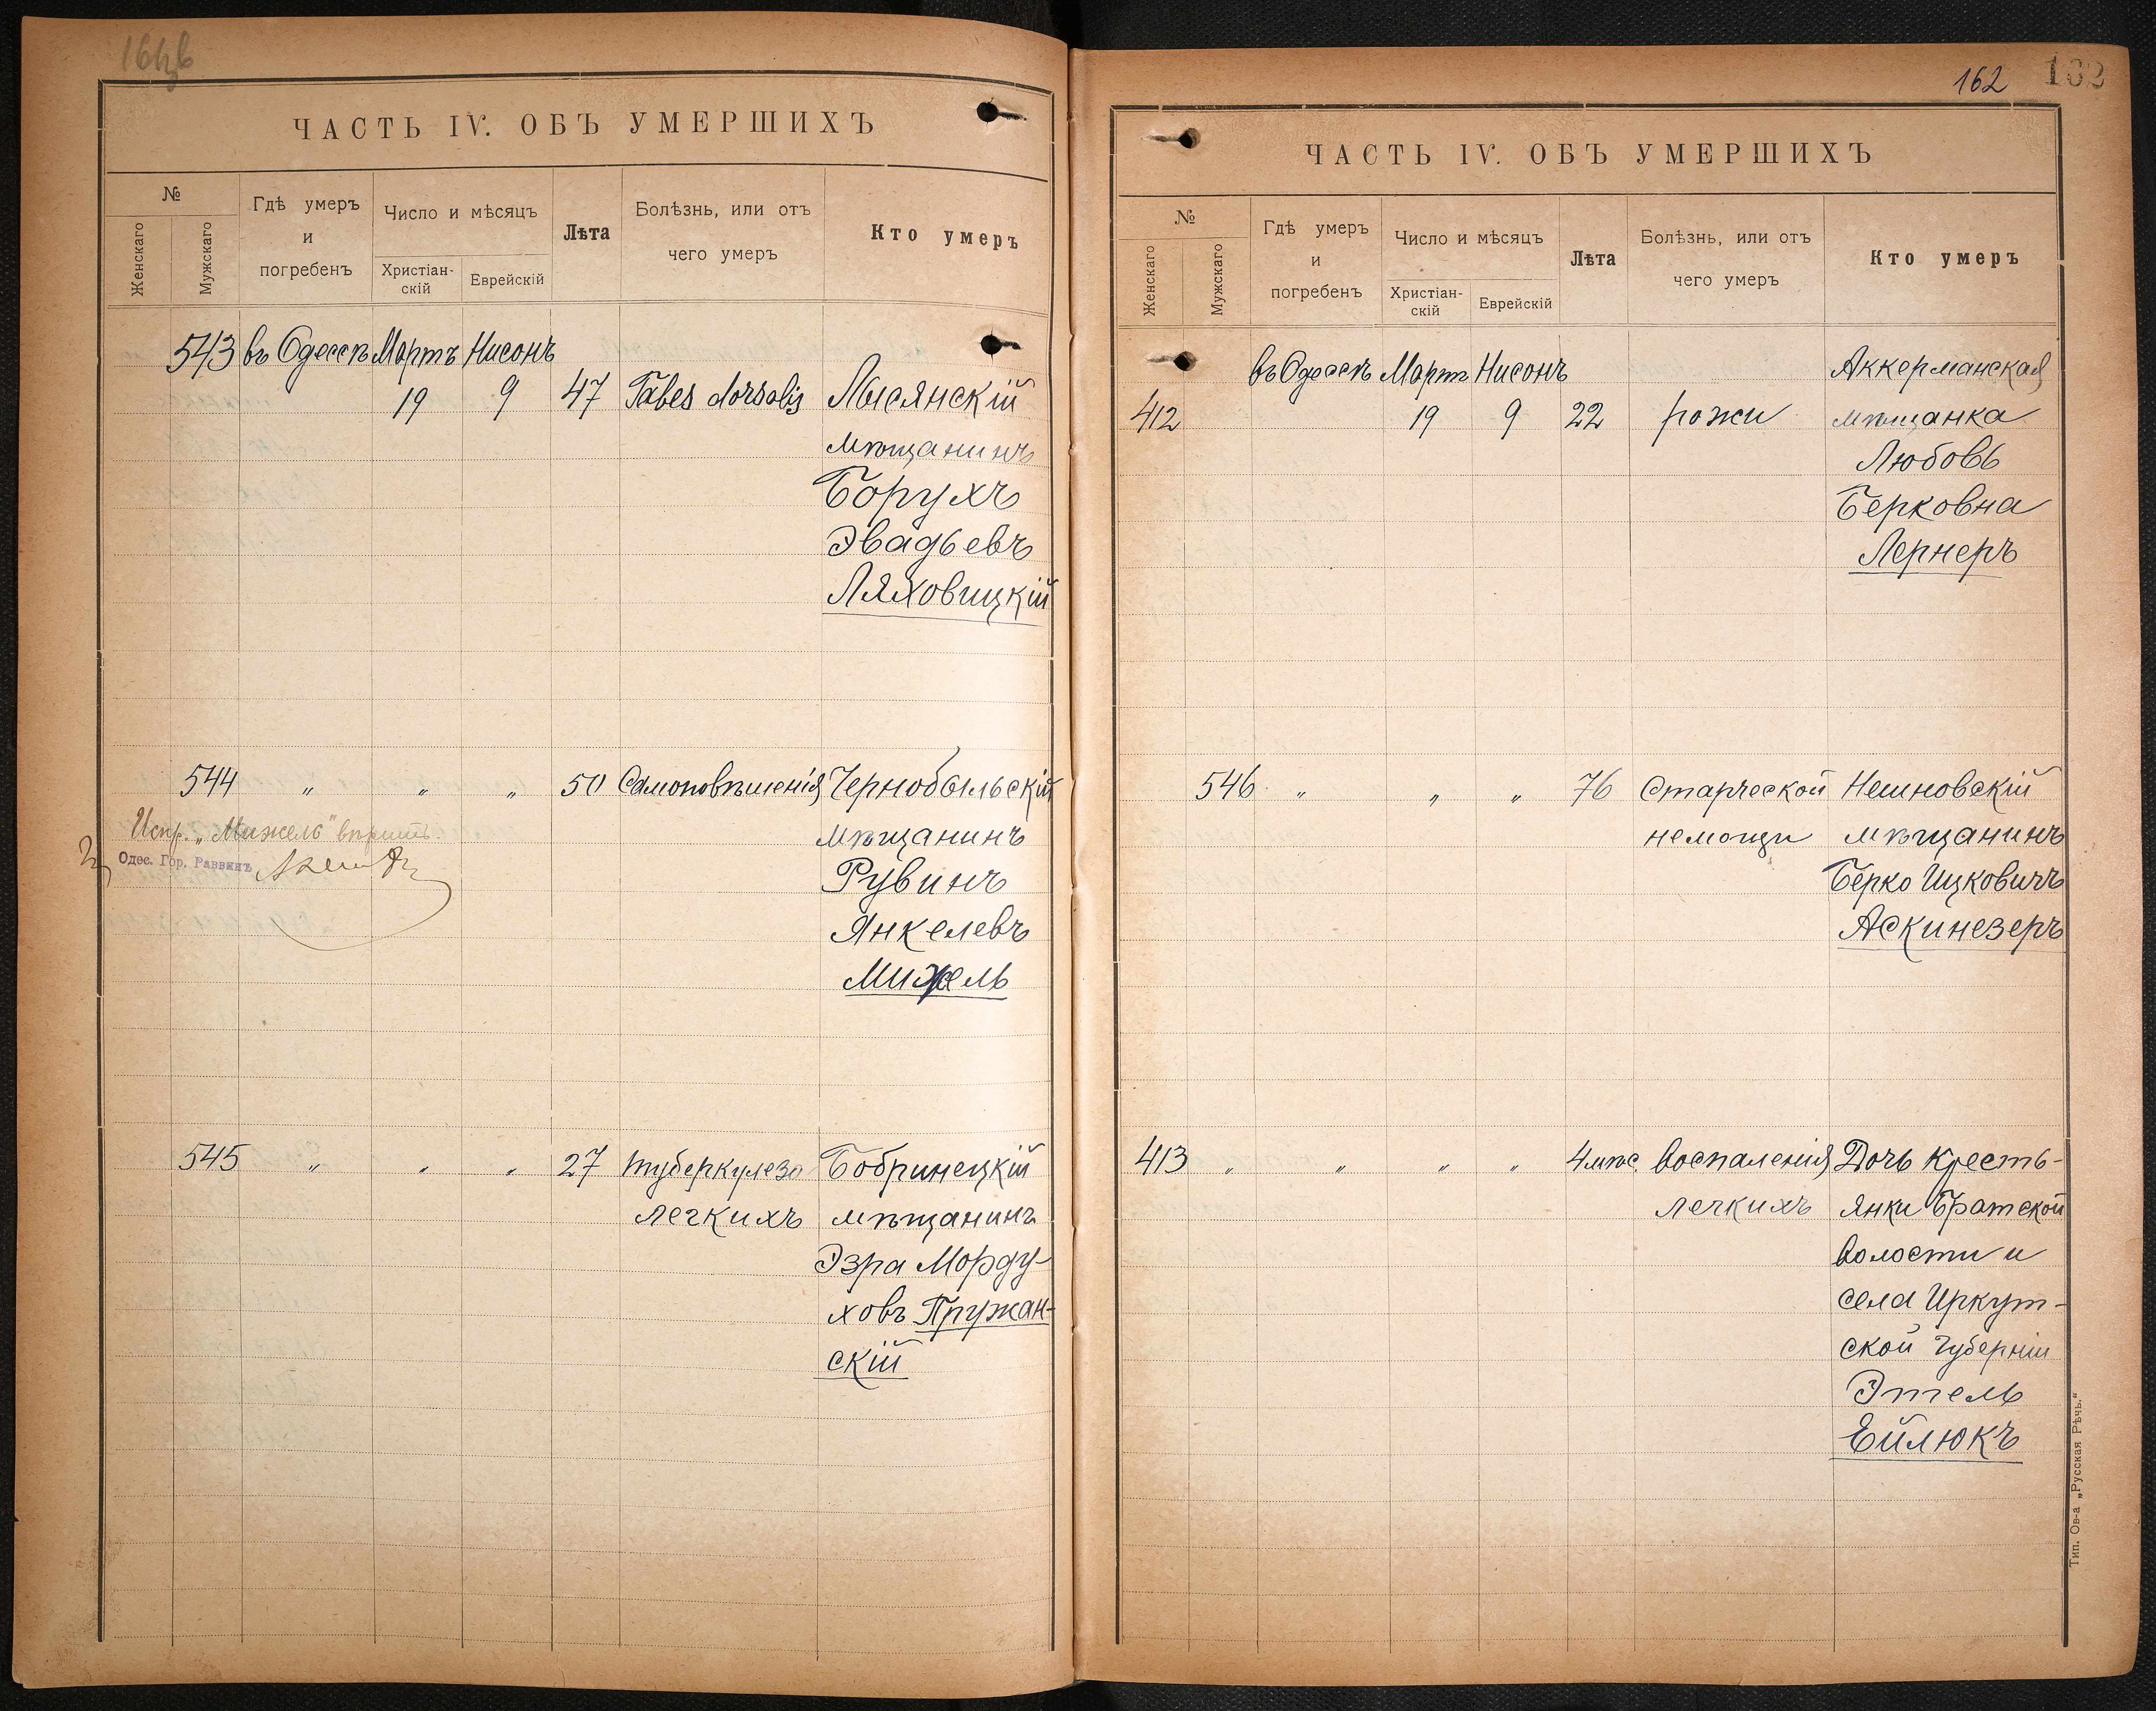 ЧАСТЬ IV. ОБЪ УМЕРШИХЪ
№
Женскаго
Мужскаго
Гдѣ умеръ
и
погребенъ
Число и мѣсяцъ
Христіан-
скій
Еврейскій
Лѣта
Болѣзнь, или отъ
чего умеръ
Кто умеръ
543 въ Одессѣ Мартъ Нисонъ
19 9 47 Tabes dorsalis Лысянскій
мѣщанинъ
Борухъ
Эвадьевъ
Ляховицкій
544 " " " 50 Самоповѣшенія Чернобыльскій
Испр. „Мижель" вѣрить.
мѣщанинъ
Одес. Гор. Раввинъ
Рувинъ
Янкелевъ
Мижель
545 " " " 27 туберкулеза Бобринецкій
легкихъ мѣщанинъ
Эзра Морду-
ховъ Пружан-
скій
162 162
ЧАСТЬ IV. ОБЪ УМЕРШИХЪ
№
Женскаго
Мужскаго
Гдѣ умеръ
и
погребенъ
Число и мѣсяцъ
Христіан-
скій
Еврейскій
Лѣта
Болѣзнь, или отъ
чего умеръ
Кто умеръ
въ Одессѣ Мартъ Нисонъ Аккерманская
412 19 9 22 рожи мѣщанка
Любовь
Берковна
Лернеръ
546 " " " 76 Старческой Нешновскій
немощи мѣщанинъ
Берко Ицковичъ
Аскинезеръ
413 " " " " 4 мѣс. воспаленія Дочь кресть-
легкихъ янки Братской
волости и
села Иркут-
ской губерніи
Этель
Ейлюкъ
Тип. Ов-а „Русская Рѣчь."